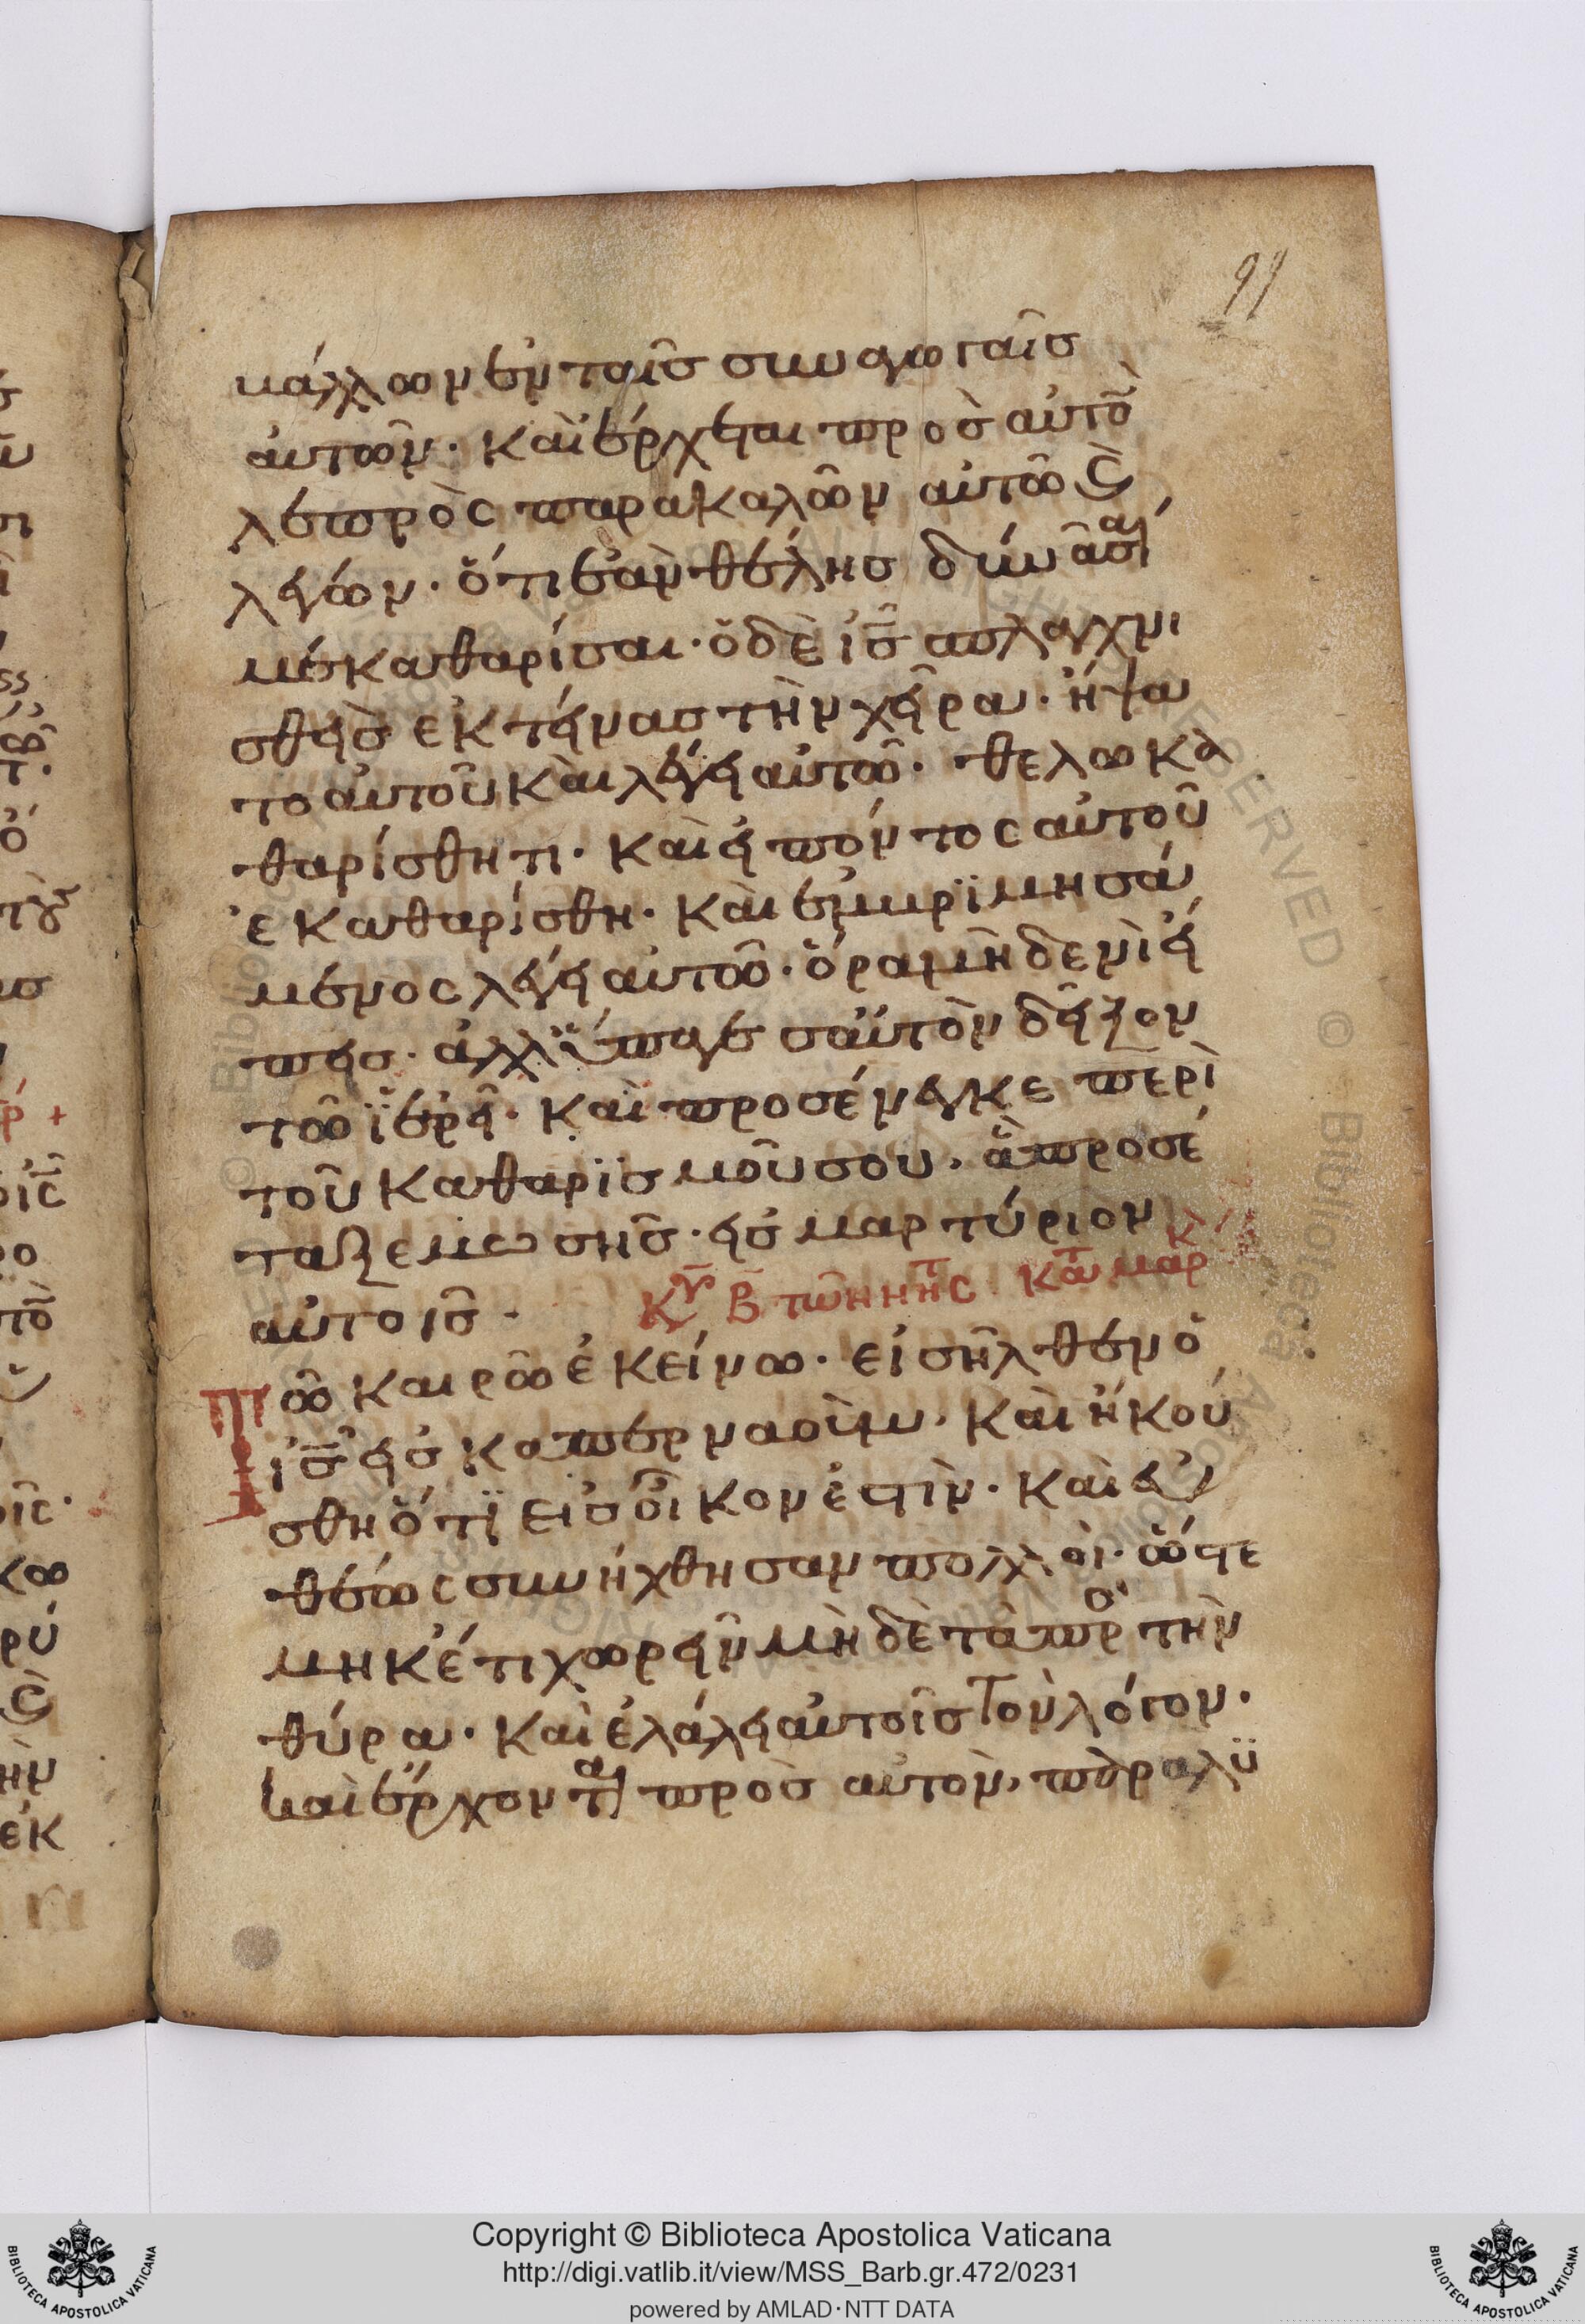 91
μάλλων ἐν ταῖς συναγωγαῖς
ἀυτῶν· καὶ ἔρχεται προσ αὐτὸ̄
λεπρὸς παρακαλῶν αὐτῶ ϛ̀
λέγων· ὅτι ἐὰν θέλησ δύνασαι
με καθαρίσαι· ὁ δὲ ις̄ σπλαγχνι
σθεὶς ἐκτείνας τὴν χεῖρα· ἥψα
το ἀυτοῦ καὶ λέγει αὐτῶ· θελω κα
θαρίσθητι· καὶ ειπόντος αὐτοῦ
ἐκαθαρίσθη· καὶ ἐμβριμησά
μενος λέγει αὐτῶ· ὅρα μὴδενὶ εἴ
πεις· ἀλλ' ὕπαγε σαὐτὸν δεῖξον
τῶ ϊἐρεῖ· καὶ προσένεγκε περὶ
τοῦ καθαρϊσμοῦ σου, ἃ προσέ
ταξε μωσησ· εἰς μαρτύριον
αὐτοῖς·
Κυ Β̄ τῶν νητς κατ μαρ
Τῶ καιρῶ ἐκείνω· εἰσῆλθεν ὁ
ις̄ εἰς καπερναοὺμ, καὶ ἠκού
σθη ὅτϊ εις οἶκον ἐστὶν· καὶ εὐ
θέως συνήχθησαν πολλοὶ· ὥστε
μηκέτι χωρεῖν μὴδὲ τὰ προ τὴν
θύρα· καὶ ἐλάλει αὐτοῖς τὸν λόγον·
καὶ ἔρχονται πρὸσ αὐτον, παραλϋ
Copyright © Biblioteca Apostolica Vaticana
http://digi.vatlib.it/view/MSS_Barb.gr.472/0231
powered by AMLAD·NTT DATA
BIBLIOTECA APOSTOLICA VATICANA
BIBLIOTECA APOSTOLICA VATICANA